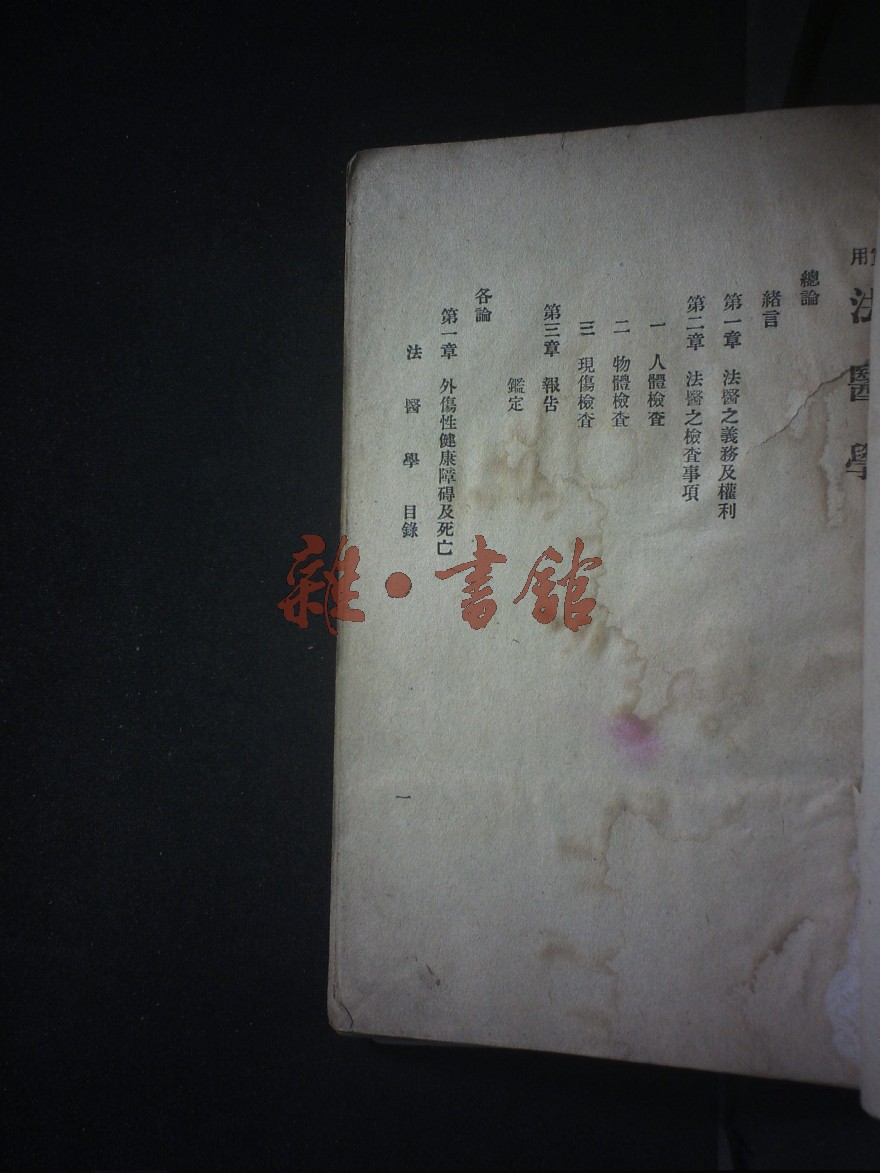 實用
法醫學
總論
緒言
第一章 法醫之義務及權利
第二章 法醫之檢查事項
一 人體檢查
二 物體檢查
三 現傷檢查
第三章 報告
鑑定
各論
第一章 外傷性健康障碍及死亡
法醫學 目錄
一
雜·書館